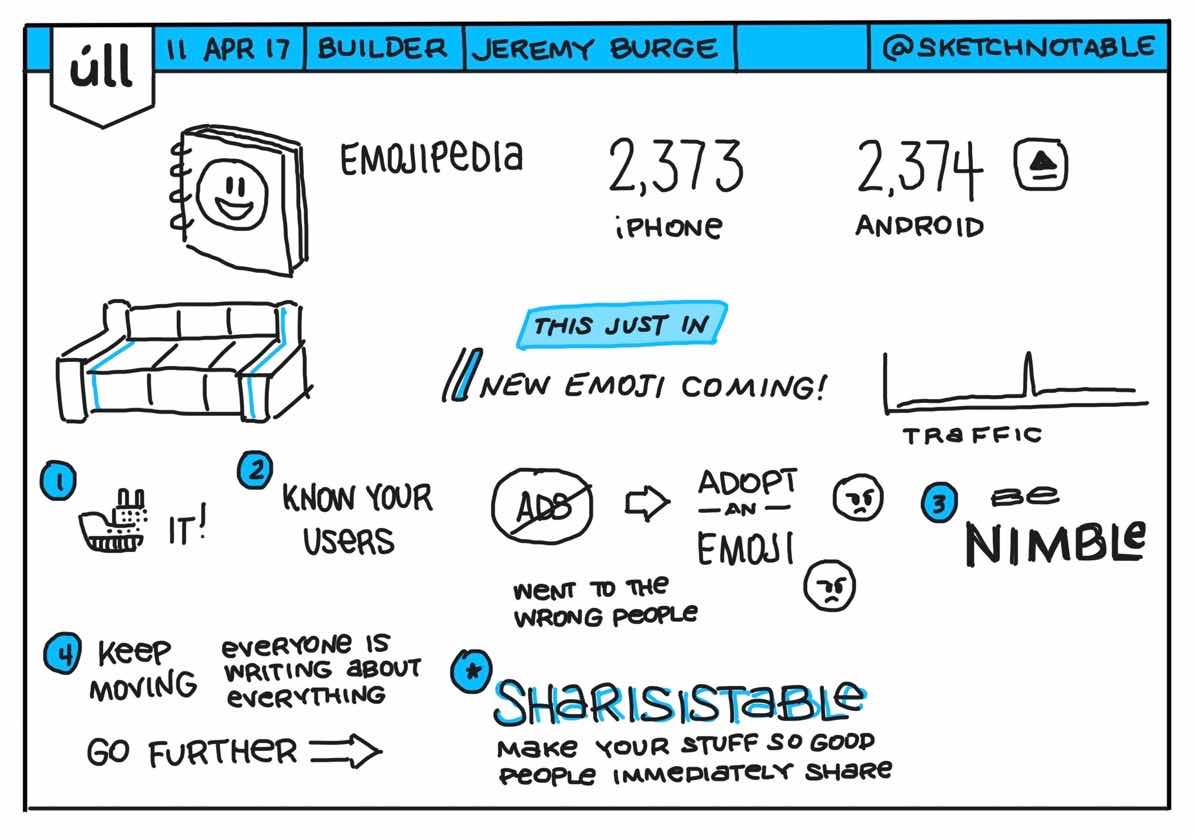 úll
11 APR 17
BUILDER
JEREMY BURGE
@SKETCHNOTABLE
EMOJIPEDIA
2,373
iPHONE
2,374
ANDROID
THIS JUST IN
NEW EMOJI COMING!
TRAFFIC
1
IT!
2
KNOW YOUR
USERS
ADS
WENT TO THE
WRONG PEOPLE
ADOPT
— AN —
EMOJI
3
BE
NIMBLE
4
KEEP
MOVING
EVERYONE IS
WRITING ABOUT
EVERYTHING
GO FURTHER
*
SHARISISTABLE
MAKE YOUR STUFF SO GOOD
PEOPLE IMMEDIATELY SHARE